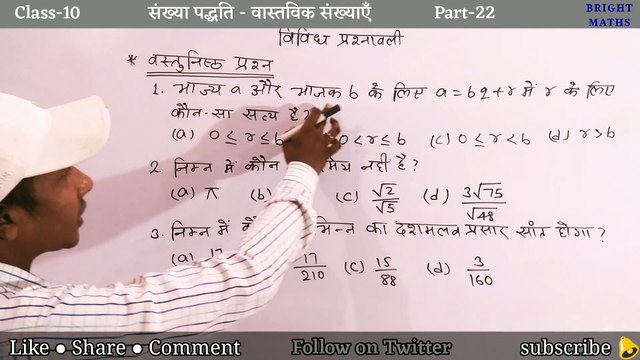 Class-10 संख्या पद्धति - वास्तविक संख्याएँ Part-22 BRIGHT MATHS
विविध प्रश्नावली
* वस्तुनिष्ठ प्रश्न
1. भाज्य a और भाजक b के लिए a = bq + r में r के लिए
कौन-सा सत्य है?
(a) 0 ≤ r ≤ b 0 < r ≤ b (c) 0 ≤ r < b (d) r > b
2. निम्न में कौन नहीं है?
(a) π (b) (c) √2/√5 (d) 3√75/√48
3. निम्न में भिन्न का दशमलव प्रसार सांत होगा?
(a) 17 17/210 (c) 15/88 (d) 3/160
Like ● Share ● Comment Follow on Twitter subscribe